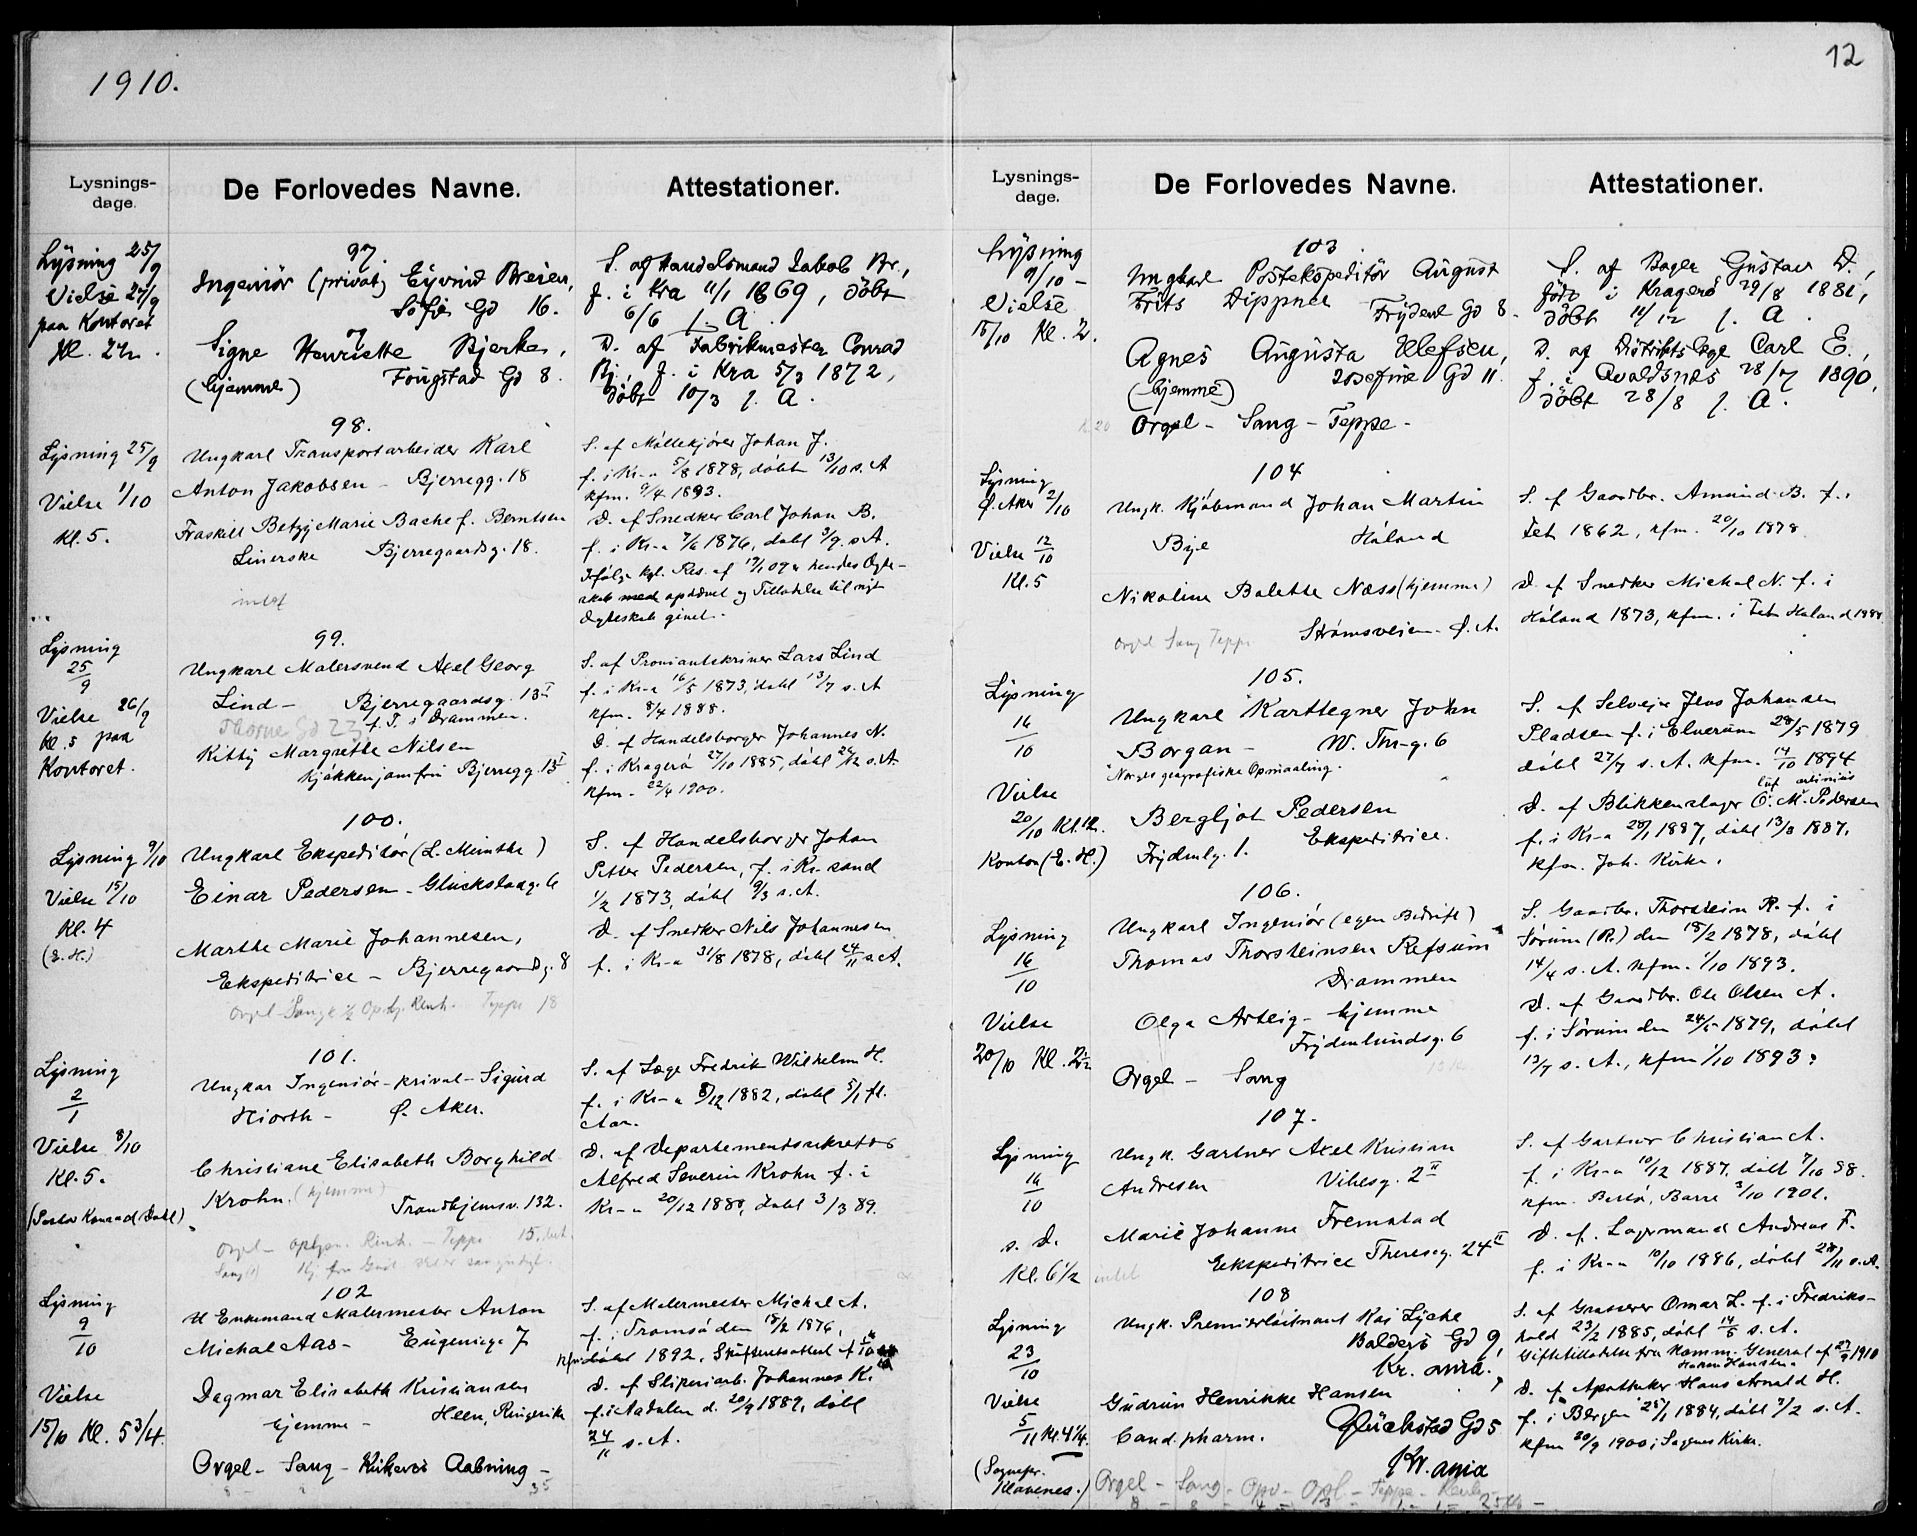 1910.
12
Lysnings-
dage.
De Forlovedes Navne.
Attestationer.
Lysning 25/9
Vielse 27/9
paa Kontoret
Kl. 2½.
97
Ingeniör (privat) Eyvind Breien,
Sofies Gd 16.
og
Signe Henriette Bjerke,
(hjemme) Fougstad Gd 8.
S. af Handelsmand Jakob Br.,
f. i Kra 11/1 1869, döbt
6/6 s. A.
D. af Fabrikmester Conrad
Bj., f. i Kra 5/3 1872,
döbt 10/3 s. A.
98.
Lysning 25/9
Vielse 1/10
Kl. 5.
Ungkarl Transportarbeider Karl
Anton Jakobsen - Bjerregg. 18
Fraskilt Betzy Marie Bache f. Berntsen
Linerske Bjerregaardsg. 18.
intet
S. af Möllekjører Johan J.
f. i Kr-a 5/8 1878, döbt 13/10 s. A
kfm. 9/4 1893.
D. af Snedker Carl Johan B.
f. i Kr-a 7/6 1876, døbt 3/9 s. A.
Ifølge kgl. Res. af hendes Ægte-
skab med ophævet og Tilladelse til nyt
Ægteskab givet.
99.
Lysning
25
9
Vielse 26/9
Kl. 5 paa
Kontoret.
Ungkarl Malersvend Axel Georg
Lind - Bjerregaardsg. 13 I
Thorne Gd 23 f. T. i Drammen.
Kitty Margrethe Nilsen
Kjøkkenjomfru Bjerregg. 13 I
S. af Proviantskriver Lars Lind
f. i Kr-a 16/5 1873, døbt 13/7 s. A
kfm. 8/4 1888.
D. af Handelsborger Johannes N.
f. i Kragerø 27/10 1885, døbt 26/12 s. A.
kfm. 22/4 1900.
100.
Lysning 9/10
Vielse 15/10
Kl. 4
(E. H.)
Ungkarl Ekspeditör (L. Meinthe)
Einar Pedersen - Glückstadg. 6
Marthe Marie Johannesen,
Ekspeditrice - Bjerregaardg. 8
Orgel Sang Teppe 18
S. af Handelsborger Johan
Petter Pedersen, f. i Kr-sand
1/2 1873, døbt 9/3 s. A.
D. af Snedker Nils Johannesen
f. i Kr-a 31/8 1878, døbt 24/11 s. A.
101.
Lysning
2
1
Vielse 8/10
Kl. 5.
(Pastor Konrad Dahl)
Ungkar Ingeniör - privat - Sigurd
Hiorth - Ø. Aker.
Christiane Elisabeth Borghild
Krohn. (hjemme)
Trondhjemsv. 132.
Orgel - oplysn. - Teppe 15.
S. af Læge Fredrik Wilhelm H.
f. i Kr-a 8/12 1882, døbt 5/1 fl.
Aar.
D. af Departementssekretær
Alfred Severin Krohn f. i
Kr-a 20/12 1888, døbt 3/3 89.
102
Lysning
9
10
Vielse
15/10 Kl. 5 3/4.
Enkemand Malermester Anton
Michal Aas - Eugeniesg. 7
Dagmar Elisabeth Kristiansen
hjemme - Heen, Ringerike
Orgel - Sang - Kirkens Aabning -
35
S. af Malermester Michal A.
f. i Tromsö den 18/2 1876,
1892. Skifteretsattest af
D. af Sliperiarb. Johannes K.
f. i Aadalen d. 20/9 1889, døbt
24
11 s. A.
Lysnings-
dage.
De Forlovedes Navne.
Attestationer.
Lysning
9/10 -
Vielse
15/10 Kl. 2.
103
Ungkarl Postekspeditör August
Frits Dippner Frydenl Gd 8.
Agnes Augusta Ellefsen,
(hjemme) Josefine Gd 11.
Orgel - Sang - Teppe -
S. af Bager Gustav D.,
född i Kragerö 29/8 1881,
döbt 11/12 s. A.
D. af Distriktslæge Carl E.,
f. i Avaldsnes 28/7 1890,
döbt 28/8 s. A.
104
Lysning
Ø. Aker 2/10
Vielse 12
10
Kl. 5
Ungk. Kjöbmand Johan Martin
Bye Høland
Nikoline Bolette Næss (hjemme)
Strømsveien. Ø. A.
Orgel Sang Teppe
S. af Gaardbr. Amund B. f. i
Fet 1862, kfm. 20/10 1878.
D. af Snedker Michal N. f. i
Høland 1873, kfm. i Fet Høland 1988
105.
Lysning
16
10
Vielse
20/10 Kl. 12.
Kontor (E. H.)
Ungkarl Karttegner John
Borgan - W. Thr-g. 6
Norges geografiske Opmaaling.
Bergljot Pedersen
Frydenlg. 1. Ekspeditrice.
S. af Selveier Jens Johansen
Pladsen f. i Elverum 28/5 1879
døbt 27/7 s. A. kfm. 14/10 1894
D. af Blikkenslager O. M. Pedersen
f. i Kr-a 28/1 1887, døbt 13/3 1887,
kfm. Joh. Kirke.
106.
Lysning
16
10
Vielse
20/10 Kl. 2½
Ungkarl Ingeniör (egen Bedrift)
Thomas Thorsteinsen Refsum
Drammen
Olga Arteig - hjemme
Frydenlundsg. 6
Orgel - Sang
S. Gaardbr. Thorstein R. f. i
Sørum (R.) den 18/2 1878, døbt
14/4 s. A. kfm. 1/10 1893.
D. af Gaardbr. Ole Olsen A.
f. i Sørum den 24/5 1879, døbt
13/7 s. A., kfm 1/10 1893.
107.
Lysning
16
10
s. D.
Kl. 6½
Ungk. Gartner Axel Kristian
Andresen Vibesg. 2 II
Marie Johanne Fremstad
Ekspeditrice Theresesg. 24 II
intet
S. af Gartner Christian A.
f. i Kr-a 10/12 1887, døbt 7/10 88.
kfm. 3/10 1901.
D. af Lagermand Andreas F.
f. i Kr-a 10/10 1886, døbt 28/11 s. A.
108
Lysning
23
10
Vielse
5
11 Kl. 4¼.
(Sognepr.
Klavenes.)
Ungk. Premierløitnant Kai Lyche
Balders Gd 9,
Kr. ania.
Gudrun Henrikke Hansen
Cand. pharm. Glückstad Gd 5
Kr. ania
Orgel - Sang - Opv - Opl. - Teppe -
S. af Grosserer Omar L. f. i Fredriks-
hald 23/2 1885, døbt 14/5 s. A.
Giftetilladelse fra Komm. General af 27/9 1910
D. af Apotheker Hans Arnold H.
f. i Bergen 25/1 1884, døbt 7/2 s. A.
kfm 30/9 1900 i Sagenes Kirke.